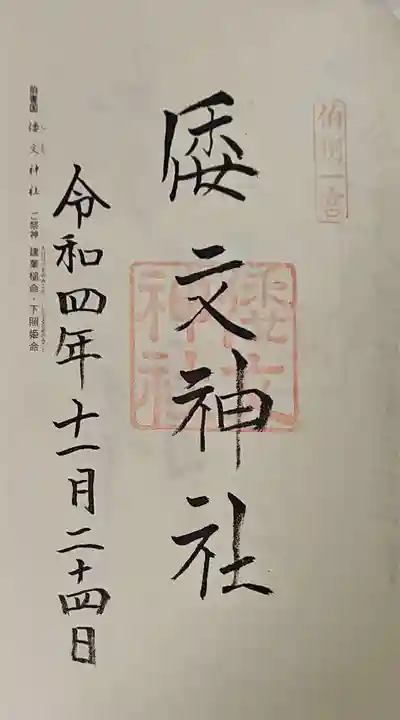 伯耆一宮
倭文神社
倭文神社
令和四年十一月二十四日
伯耆国 倭文神社 ご祭神 建葉槌命・下照姫命